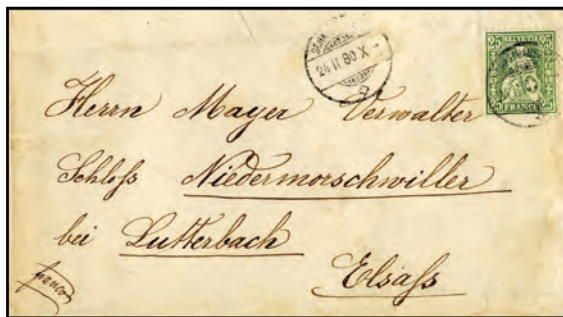 24 II 80 X
25 HELVETIA 25
25 FRANCO 25
Herrn Mayer Verwalter
Schloss Niedermorschwiller
bei Lutterbach
Elsass
franco